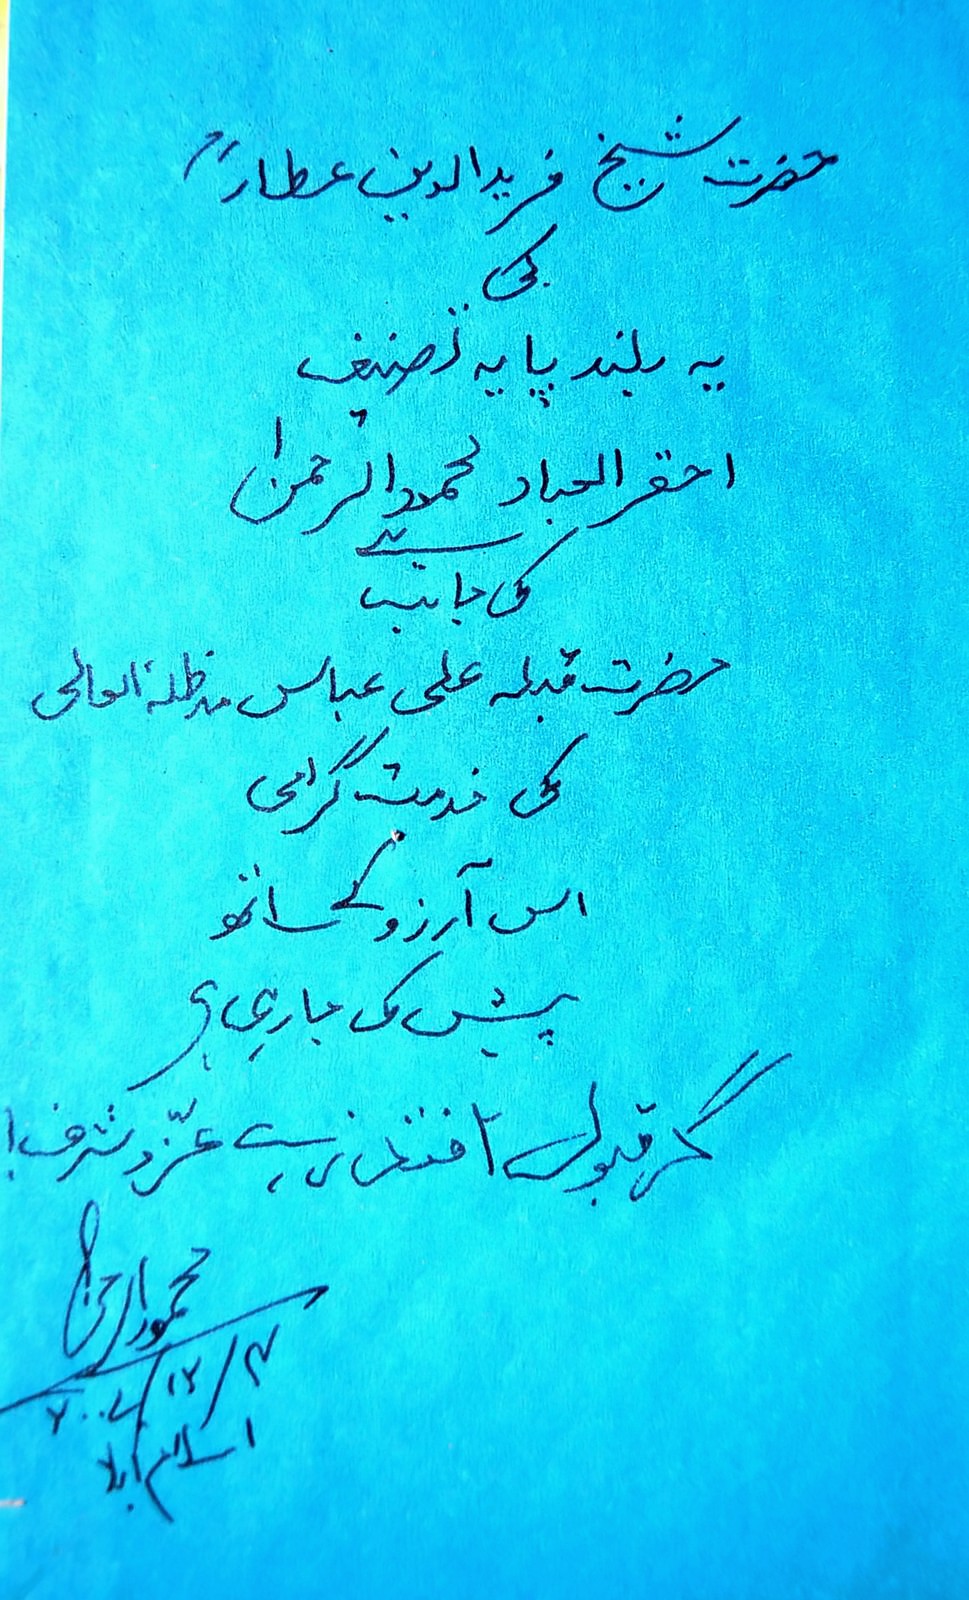 حضرت شیخ فرید الدین عطارؒ
کی
یہ بلند پایہ تصنیف
احقر العباد محمود الرحمٰن
کی جانب سے
حضرت قبلہ علی عباس مدظلہ العالی
کی خدمت گرامی
اس آرزو کے ساتھ
پیش کی جا رہی ہے
گر قبول افتد زہے عز و شرف!
محمود الرحمٰن
۴/۱۲/۲۰۰۷
اسلام آباد